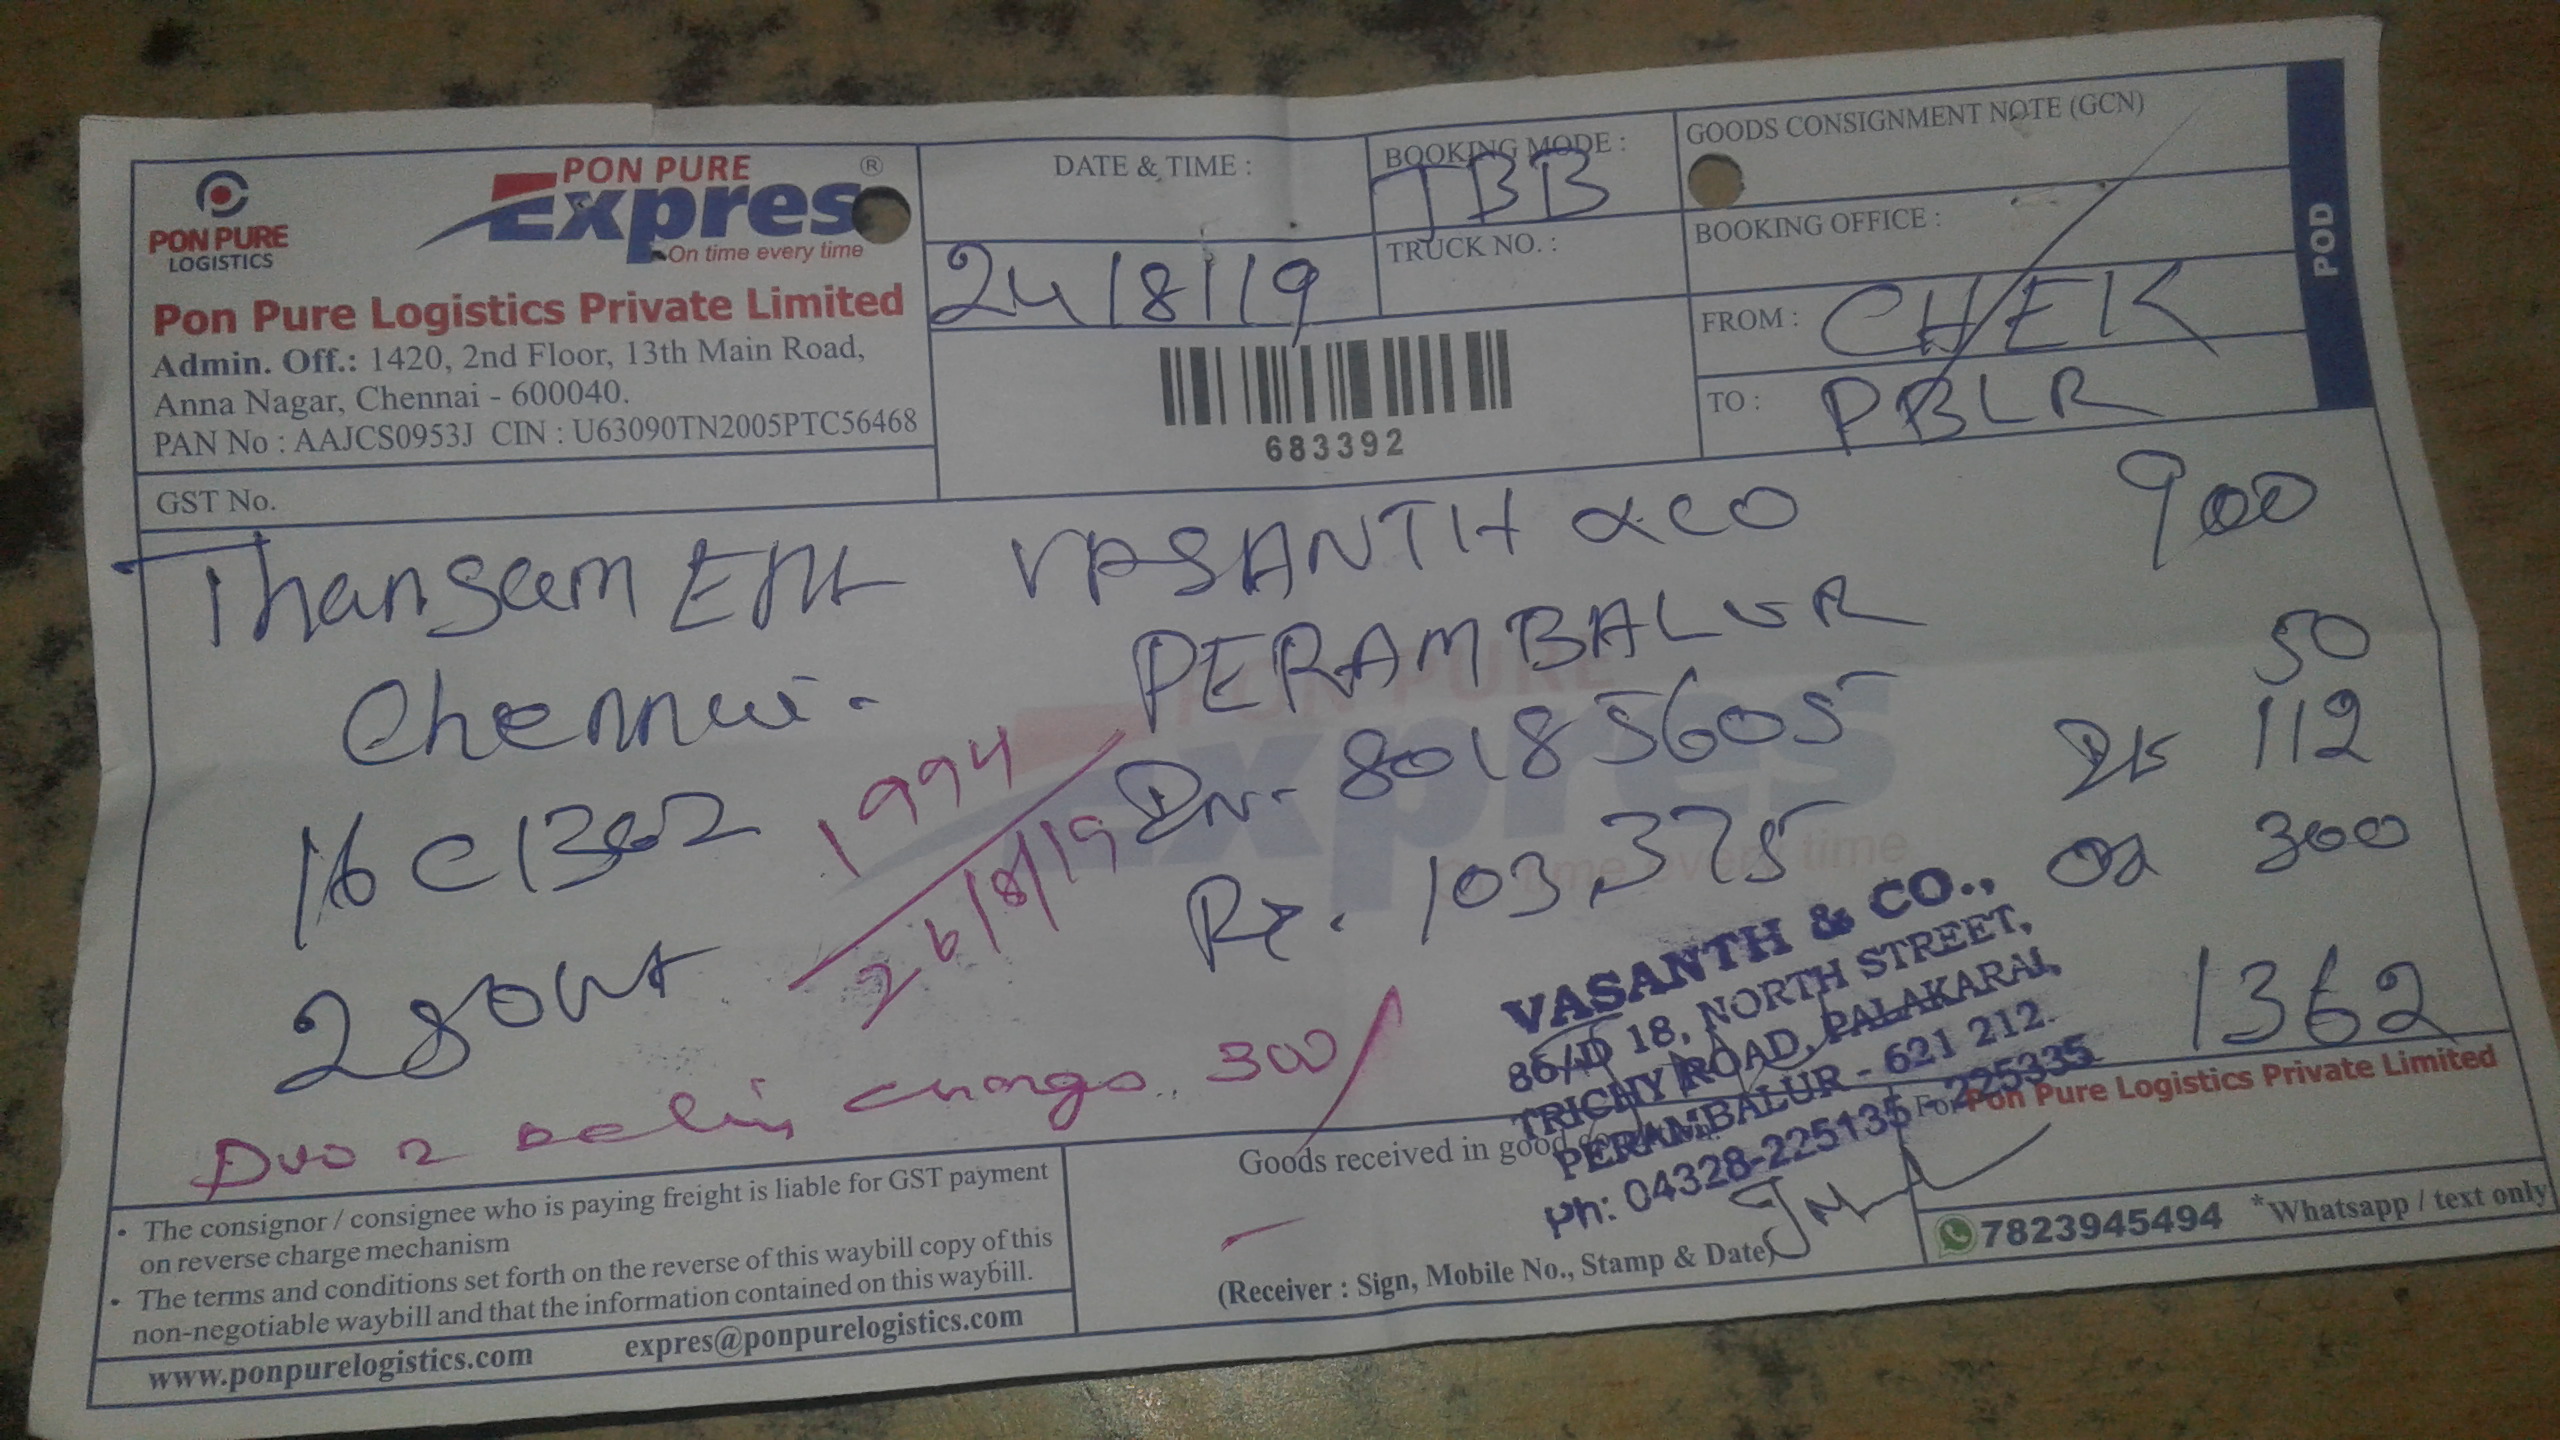 PON PURE
LOGISTICS
PON PURE
Expres
®
On time every time
Pon Pure Logistics Private Limited
Admin. Off.: 1420, 2nd Floor, 13th Main Road,
Anna Nagar, Chennai - 600040.
PAN No : AAJCS0953J CIN : U63090TN2005PTC56468
GST No.
DATE & TIME :
24/8/19
BOOKING MODE :
TBB
TRUCK NO. :
683392
GOODS CONSIGNMENT NOTE (GCN)
BOOKING OFFICE :
FROM : CHEK
TO : PBLR
POD
VASANTH & CO 900
Chennai.
PERAMBALUR 50
80185605 112
Rs. 103,375 300
1362
280
1994
26/8/19
charge.. 300/
VASANTH & CO.,
86/D 18, NORTH STREET,
TRICHY ROAD, PALAKARAI,
PERAMBALUR - 621 212.
Ph: 04328-225135 - 225335
For Pon Pure Logistics Private Limited
Goods received in good
(Receiver : Sign, Mobile No., Stamp & Date)
7823945494 *Whatsapp / text only
• The consignor / consignee who is paying freight is liable for GST payment
on reverse charge mechanism
• The terms and conditions set forth on the reverse of this waybill copy of this
non-negotiable waybill and that the information contained on this waybill.
www.ponpurelogistics.com expres@ponpurelogistics.com